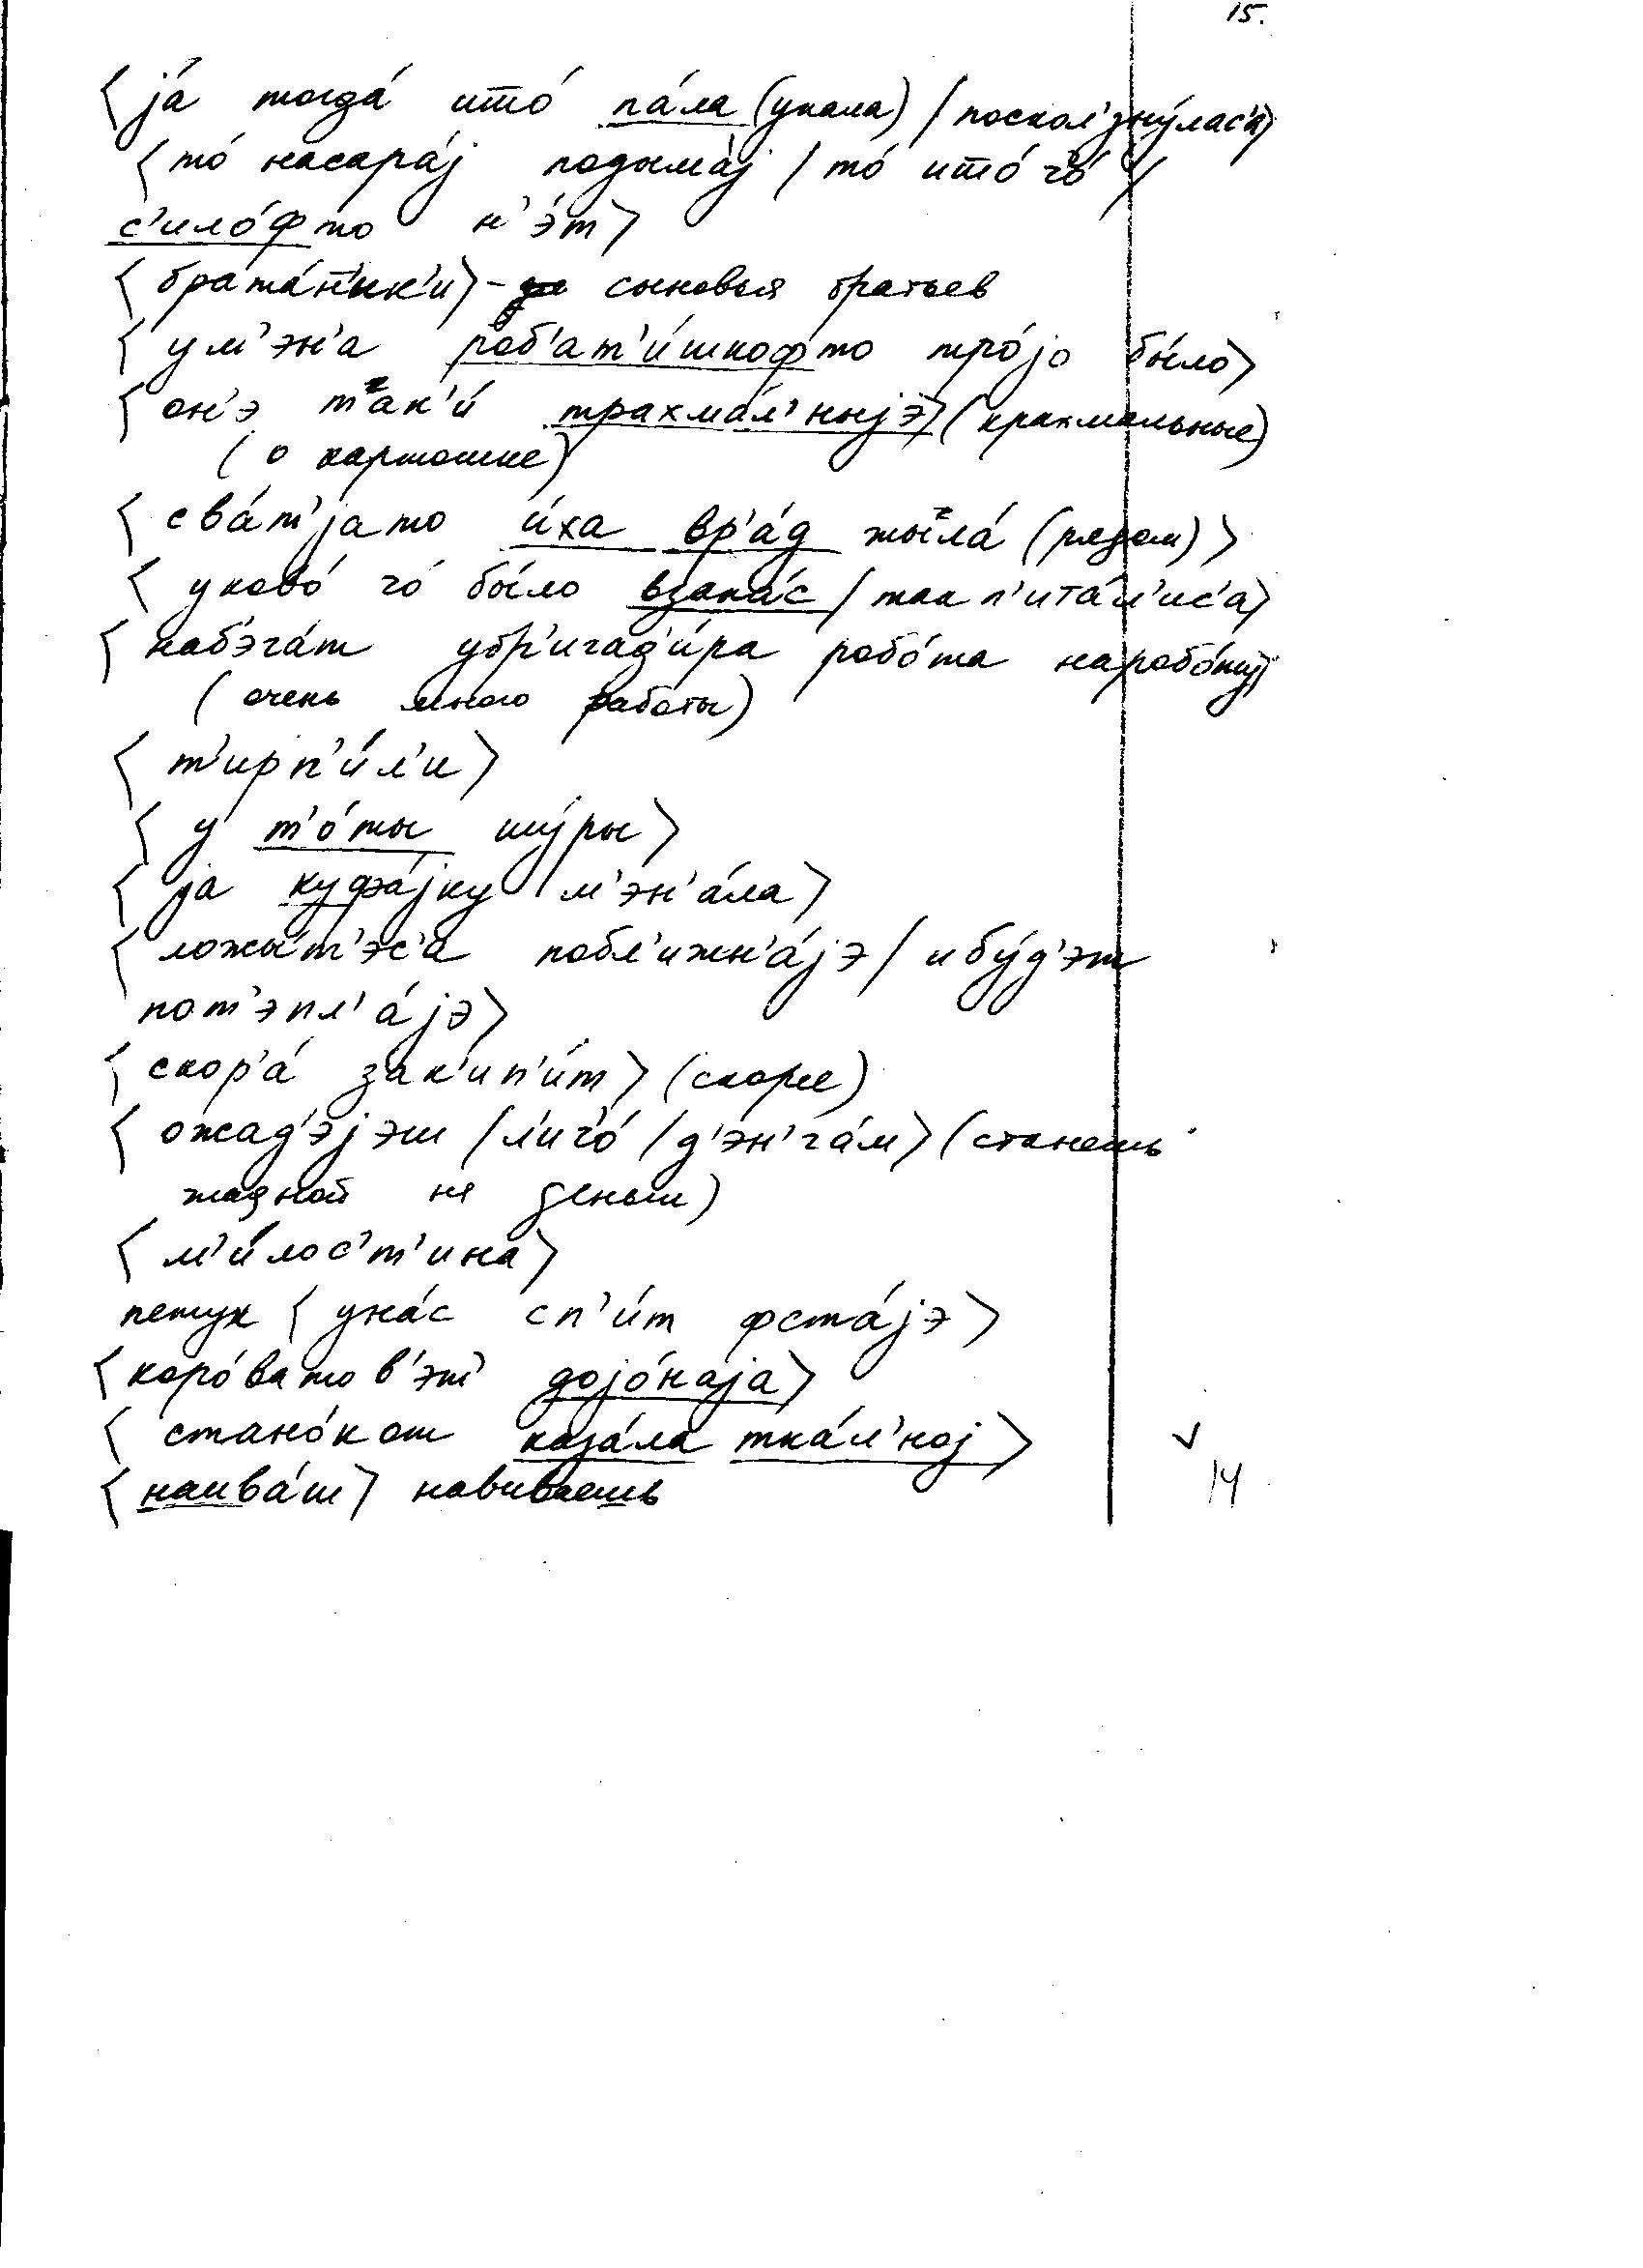 15.
⟨ jа́ тогда́ што́ па́ла (упала) / поскол'зну́лас'а⟩
⟨ то́ насара́j подыма́j / то́ што́ чо́ /
с'ило́фто н'э́т⟩
⟨ брата́н'ик'и⟩ - сыновья братьев
⟨ ум'эн'а роб'ат'и́шкофто тро́jо бы́ло⟩
⟨ он'э так'и́ трахма́л'ныjэ⟩ (крахмальные)
( о картошке)
⟨ сва́т'jато и́ха вр'а́д жыла́ (рядом) ⟩
⟨ уково́ чо́ бы́ло взапа́с / так п'ита́л'ис'а⟩
⟨ наб'эга́т убр'игад'и́ра робо́та наробо́ту⟩
( очень много работы)
⟨ т'ирп'и́л'и ⟩
⟨ у т'о́ты шу́ры ⟩
⟨ jа куфа́jку м'эн'а́ла ⟩
⟨ ложы́т'эс'а побл'ижн'а́jэ / ибу́д'эт
пот'эпл'а́jэ⟩
⟨ скор'а́ зак'ип'и́т ⟩ (скорее)
⟨ ожад'э́jэш / л'ичо́ / д'эн'га́м ⟩ (станешь
жадной на деньги)
⟨ м'и́лос'т'ина ⟩
петух ⟨ уна́с сп'и́т фста́jэ ⟩
⟨ коро́вато в'эт' доjо́наjа ⟩
⟨ стано́кот каза́ла тка́л'ноj ⟩
⟨ наива́ш ⟩ навиваешь
14